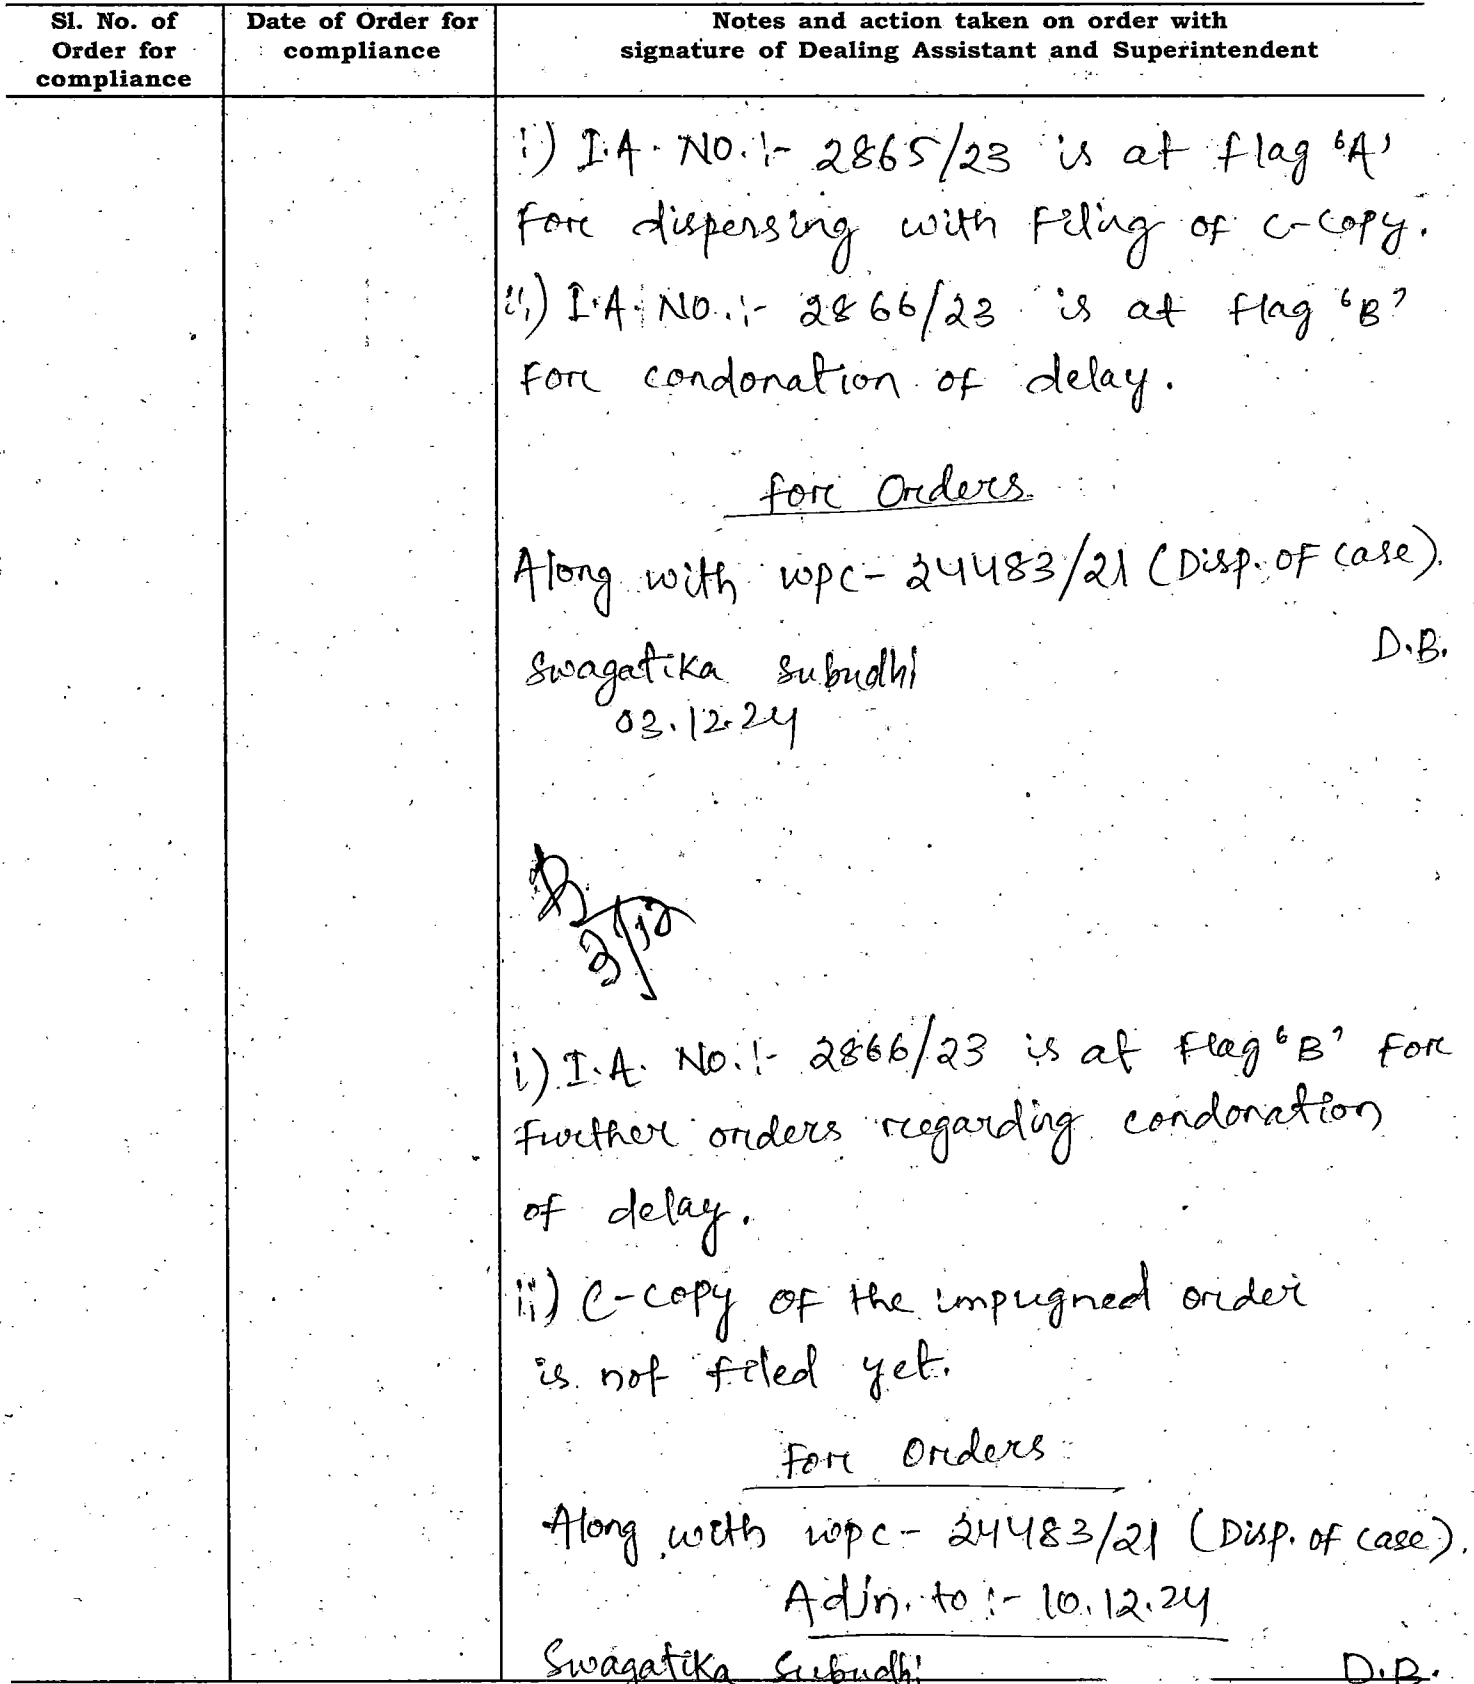 Sl. No. of Order for compliance
Date of Order for compliance
Notes and action taken on order with signature of Dealing Assistant and Superintendent
i) I.A. NO.:- 2865/23 is at flag 'A'
Fore dispersing with Filing of C-Copy.
ii) I.A. NO.:- 2866/23 is at flag 'B'
Fore condonation of delay.
fore Orders.
Along with wpc- 24483/21 (Disp. of case).
D.B.
Swagatika Subudhi
03.12.24
3/12
i) I.A. No.:- 2866/23 is at Flag 'B' Fore
Further orders regarding condonation
of delay.
ii) C-copy of the impugned order
is not filed yet.
Fore Orders
Along with wpc - 24483/21 (Disp. of case).
Adjn. to :- 10.12.24
Swagatika Subudhi D.B.